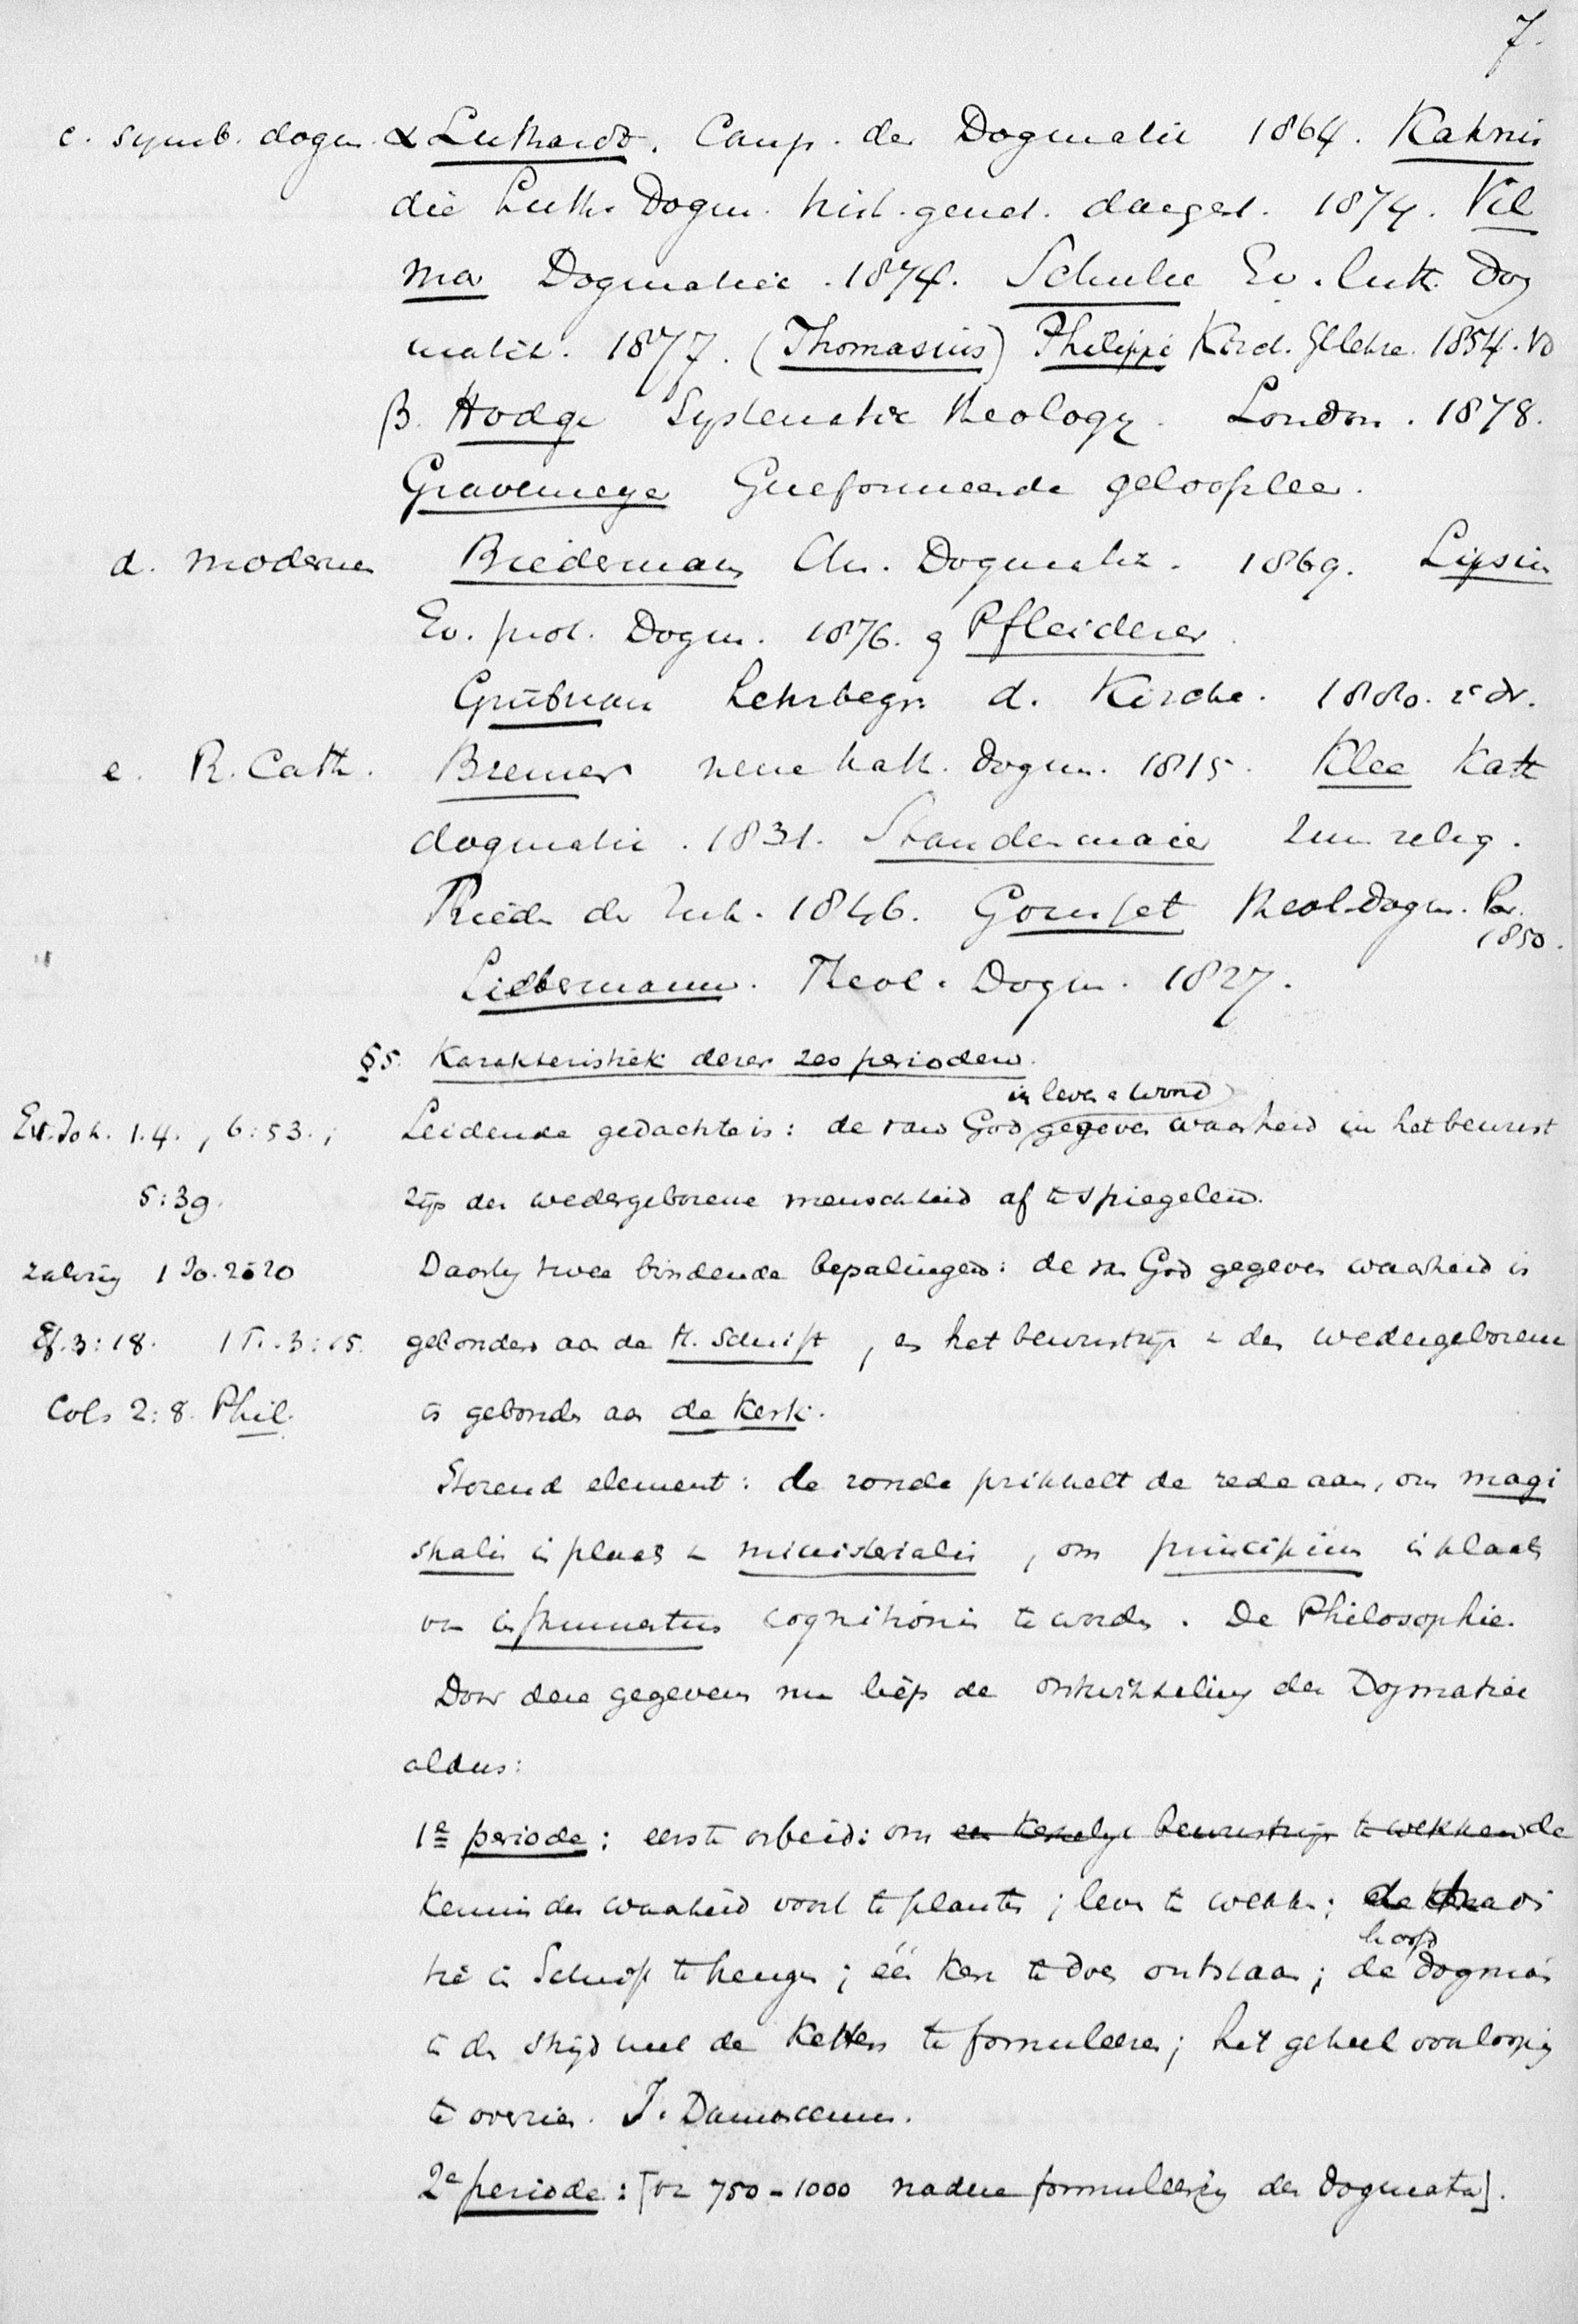 7.
c. symb. dogm. α Luthardt. Comp. der Dogmatik 1864. Kahnis
die Luth. Dogm. hist. genet. dargest. 1874. Vil
mar Dogmatik. 1874. Schulze Ev. luth. Dog
matik. 1877. (Thomasius) Philippi Kirch. Gllehre. 1854. VD
β. Hodge Systematic theology. London. 1878.
Gravemeyer Gereformeerde geloofsleer.
d. moderne Biederman Chr. Dogmatik. 1869. Lipsius
Ev. prot. Dogm. 1876. Pfleiderer.
Lehrbegr. d. Kirche. 1880. 2e dr.
e. R. Cath. Brenner neue kath. Dogm. 1815. Klee Kath
dogmatik. 1831. Staudenmaier zum relig.
Friede der Zuk. 1846. Gousset theol. Dogm. Par.
1850.
Liebermann. Theol. Dogm. 1827.
§5. Karakteristiek dezer zes perioden.
in leven & woord
Ev. Joh. 1.4., 6:53.; Leidende gedachte is: de van God gegeven waarheid in het bewust
5:39. zijn der wedergeborene menschheid af te spiegelen.
zalving 1 Jo. 2:20 Daarbij twee bindende bepalingen: de van God gegeven waarheid is
Ef. 3:18. 1 Ti. 3:15. gebonden aan de H. Schrift, en het bewustzijn v. den wedergeborene
Cols 2:8. Phil. is gebonden aan de Kerk.
Storend element: de zonde prikkelt de rede aan, om magi
stralis in plaats v. ministerialis, om principium in plaats
van instrumentum cognitionis te worden. De Philosophie.
Door deze gegevens nu liep de ontwikkeling der Dogmatiek
aldus:
1e periode: eerste arbeid: om een Kerkelijk bewustzijn te wekken de
kennis der waarheid voort te planten; leven te wekken; de
hoofd
tie in Schrift te hengen; één Kerk te doen ontstaan; de dogma's
in den strijd met de Ketters te formuleeren; het geheel voorloopig
te overzien. J. Damascenus.
2e periode: [van 750-1000 nadere formuleering der dogmata].